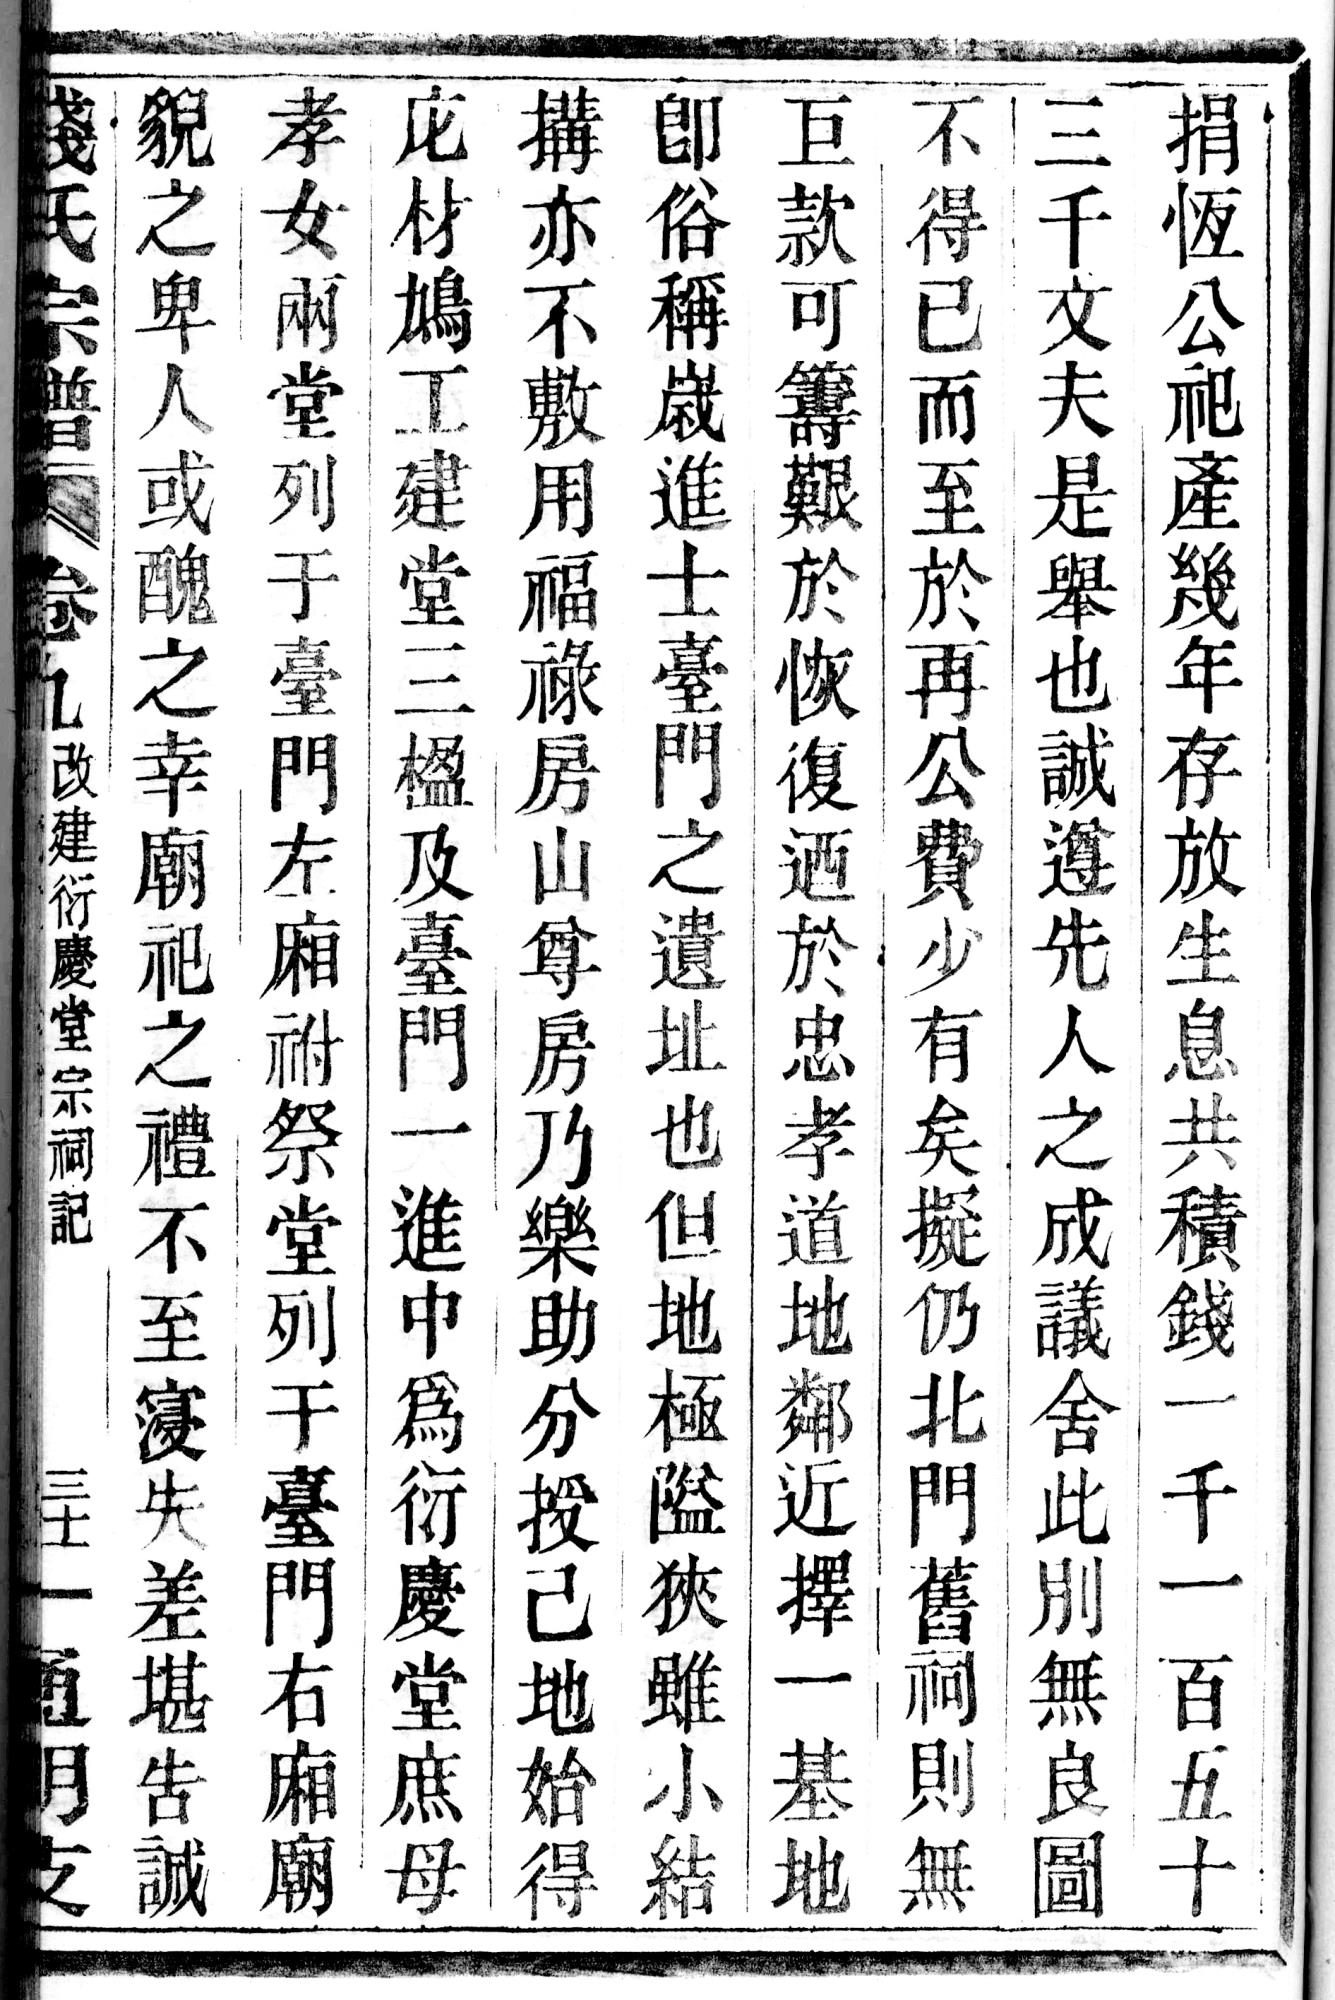 捐恆公祀產幾年存放生息共積錢一千一百五十
三千文夫是舉也誠遵先人之成議舍此別無良圖
不得已而至於再公費少有矣擬仍北門舊祠則無
巨款可籌艱於恢復迺於忠孝道地鄰近擇一基地
卽俗稱歲進士臺門之遺址也但地極隘狹雖小結
搆亦不敷用福祿房山尊房乃樂助分授己地始得
庀材鳩工建堂三楹及臺門一進中爲衍慶堂庶母
孝女兩堂列于臺門左廂祔祭堂列于臺門右廂廟
貌之卑人或醜之幸廟祀之禮不至寖失差堪告誠
錢氏宗譜 卷九 改建衍慶堂宗祠記 三十一 通明支